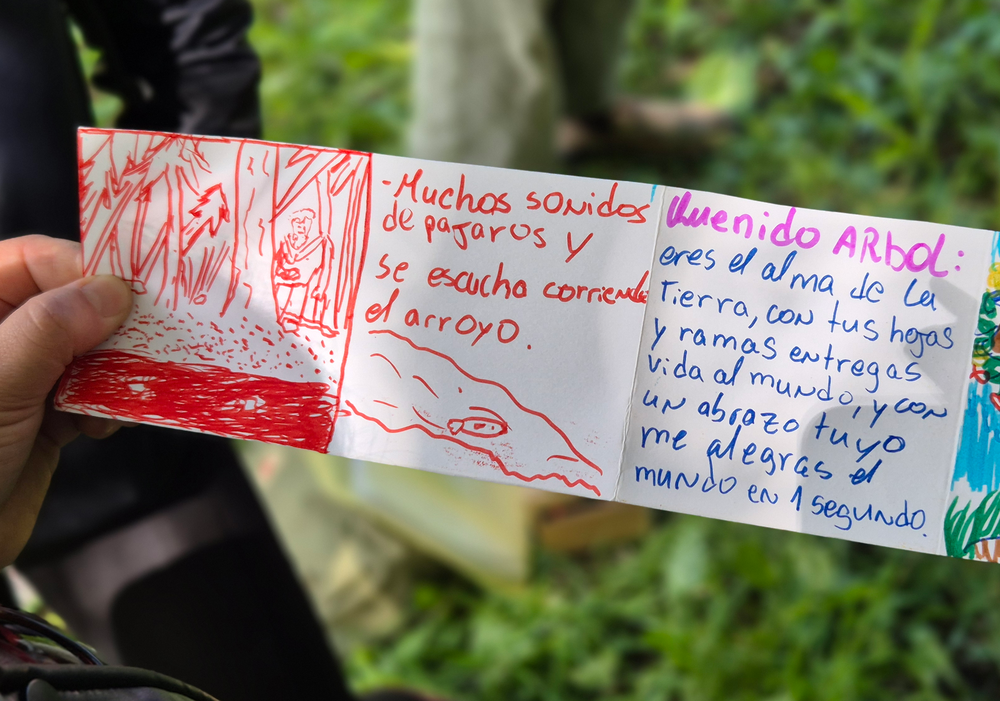 - Muchos sonidos
de pajaros y
se escucha corriendo
el arroyo.
Quenido ARbol:
eres el alma de la
Tierra, con tus hojas
y ramas entregas
vida al mundo, y con
un abrazo tuyo
me alegras el
mundo en 1 segundo.